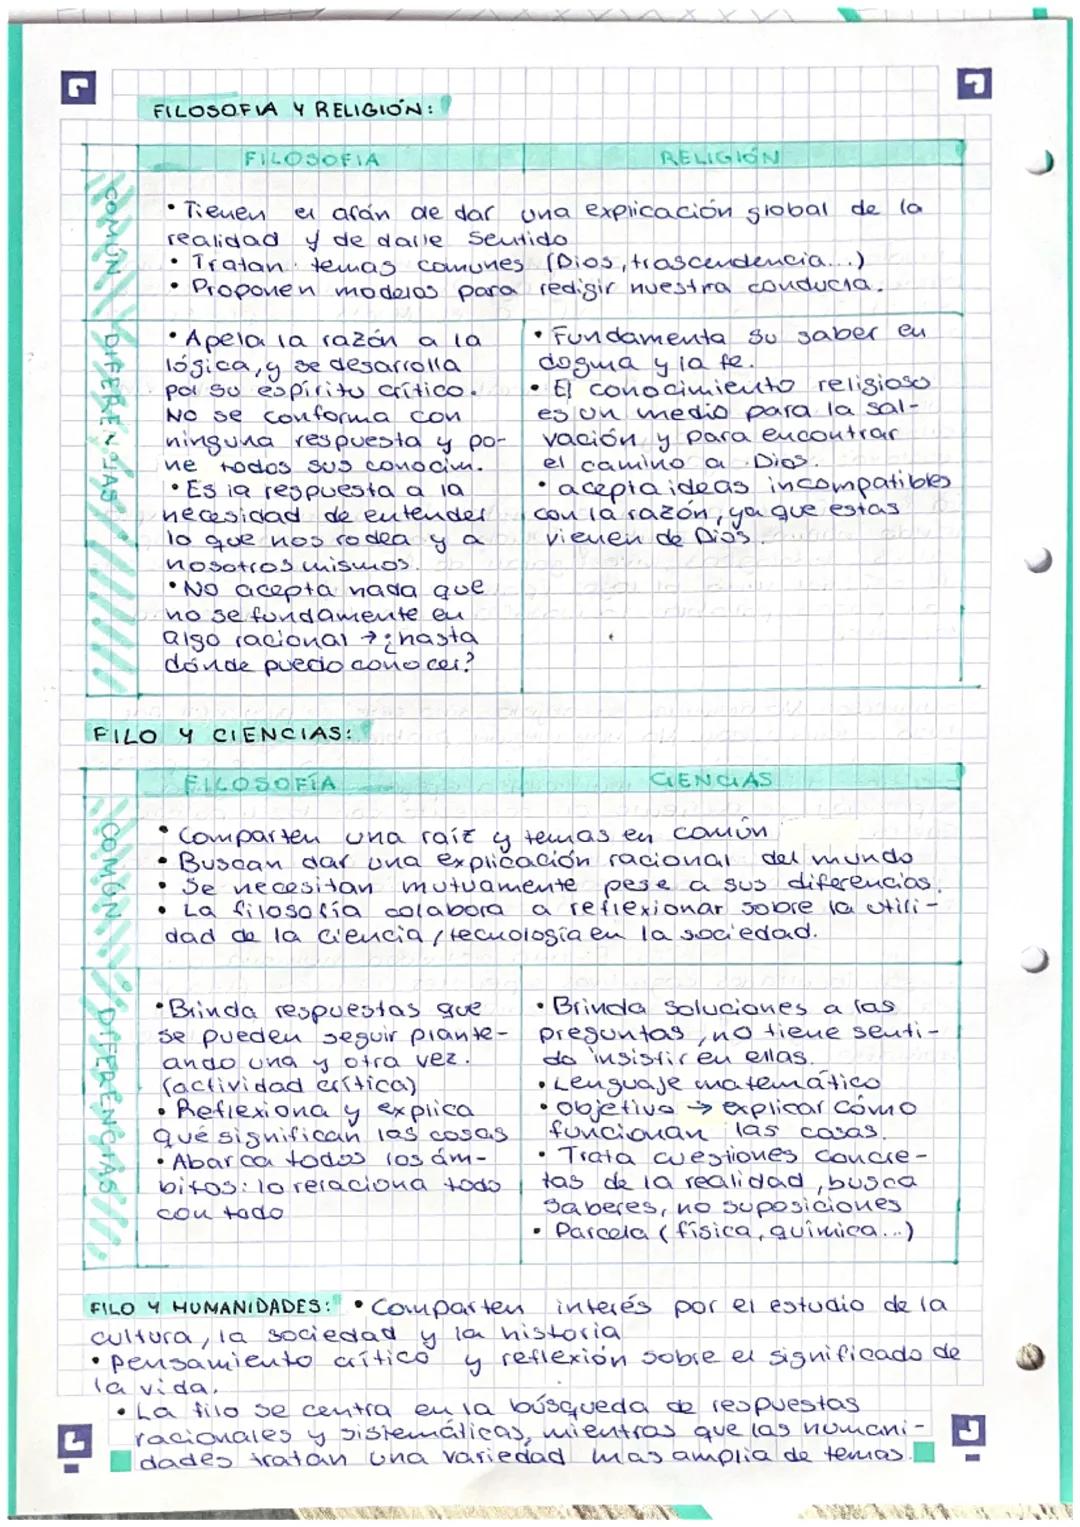 FILOSOFIA Y RELIGIÓN:
FILOSOFIA
RELIGIÓN
COMÚN
• Tienen el afán de dar una explicación global de la
realidad y de darle sentido
• Tratan temas comunes (Dios, trascendencia...)
• Proponen modelos para redigir nuestra conducta.
DIFERENCIAS
• Apela la razón a la
lógica, y se desarrolla
por su espíritu crítico.
No se conforma con
ninguna respuesta y po-
ne todos sus conocim.
• Es la respuesta a la
necesidad de entender
lo que nos rodea y a
nosotros mismos.
• No acepta nada que
no se fundamente en
algo racional → ¿hasta
dónde puedo conocer?
• Fundamenta su saber en
dogma y la fe.
• El conocimiento religioso
es un medio para la sal-
vación y para encontrar
el camino a Dios.
• acepta ideas incompatibles
con la razón, ya que estas
vienen de Dios.
FILO Y CIENCIAS:
FILOSOFÍA
CIENCIAS
COMÚN
• Comparten una raíz y temas en común
• Buscan dar una explicación racional del mundo
• Se necesitan mutuamente pese a sus diferencias.
• La filosofía colabora a reflexionar sobre la utili-
dad de la ciencia/tecnología en la sociedad.
DIFERENCIAS
• Brinda respuestas que
se pueden seguir plante-
ando una y otra vez.
(actividad crítica)
• Reflexiona y explica
qué significan las cosas
• Abarca todos los ám-
bitos: lo relaciona todo
con todo
• Brinda soluciones a las
preguntas, no tiene senti-
do insistir en ellas.
• Lenguaje matemático
• Objetivo → explicar cómo
funcionan las cosas.
• Trata cuestiones concre-
tas de la realidad, busca
saberes, no suposiciones
• Parcela (física, química...)
FILO Y HUMANIDADES: • Comparten interés por el estudio de la
cultura, la sociedad y la historia
• pensamiento crítico y reflexión sobre el significado de
la vida.
• La filo se centra en la búsqueda de respuestas
racionales y sistemáticas, mientras que las humani-
dades tratan una variedad mas amplia de temas.